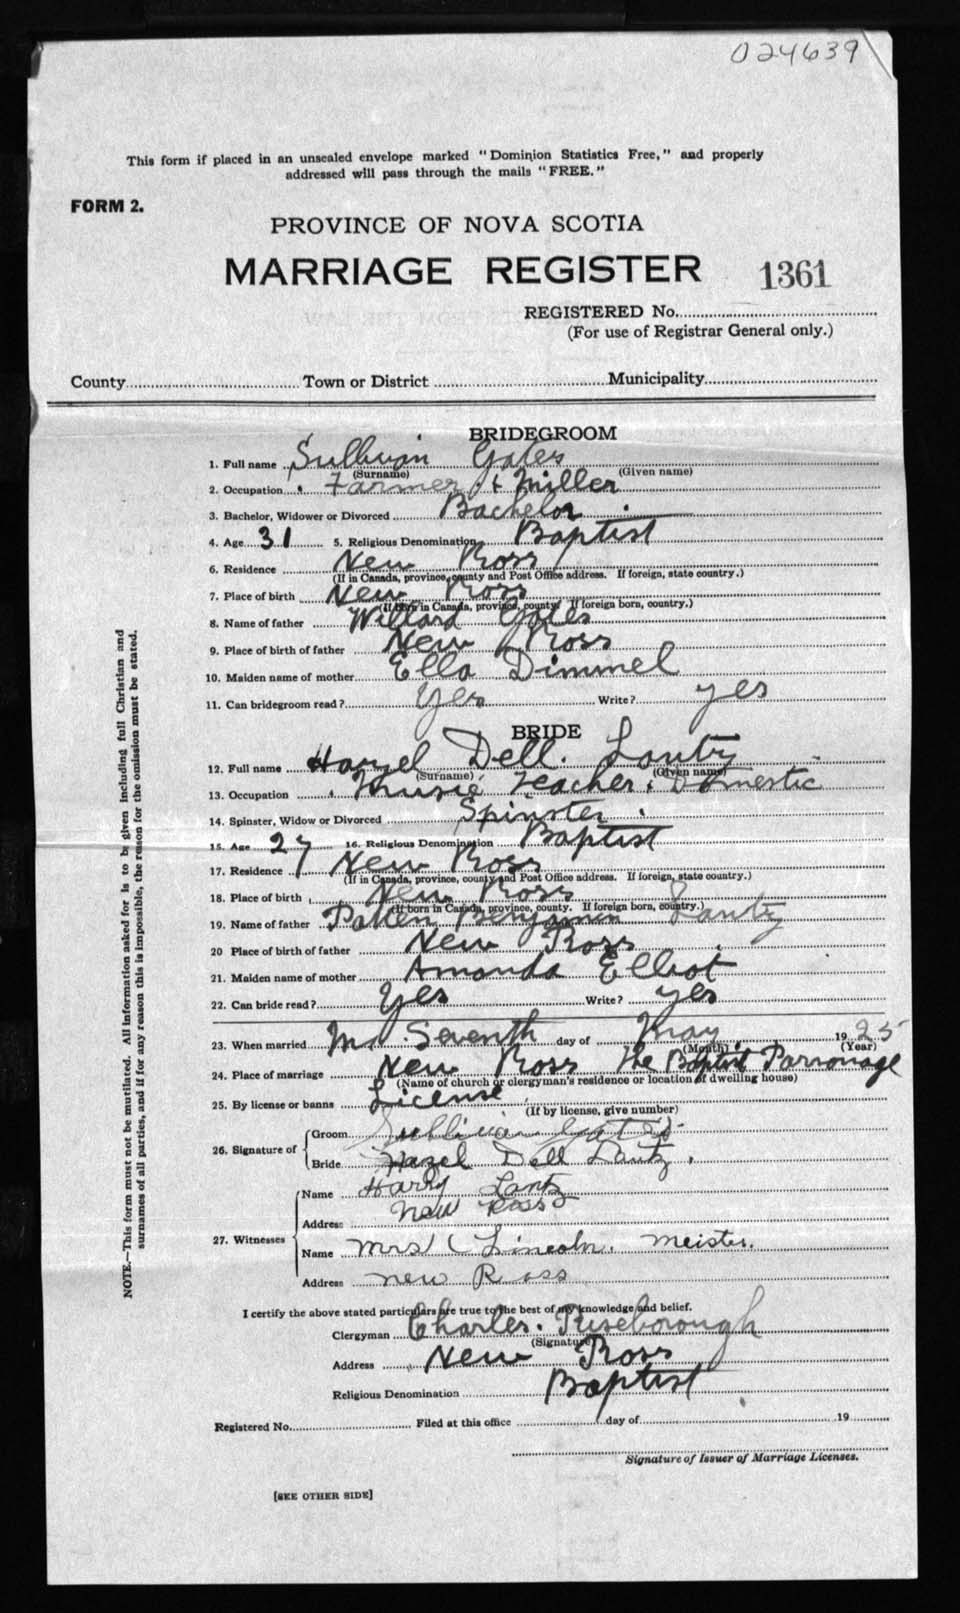 024639
This form if placed in an unsealed envelope marked "Dominion Statistics Free," and properly
addressed will pass through the mails "FREE."
FORM 2.
PROVINCE OF NOVA SCOTIA
MARRIAGE REGISTER 1361
REGISTERED No.
(For use of Registrar General only.)
County Town or District Municipality
BRIDEGROOM
1. Full name Sullivan Gates
(Surname) (Given name)
2. Occupation Farmer & Miller
3. Bachelor, Widower or Divorced Bachelor
4. Age 31 5. Religious Denomination Baptist
6. Residence New Ross
(If in Canada, province, county and Post Office address. If foreign, state country.)
7. Place of birth New Ross
(If born in Canada, province, county. If foreign born, country.)
8. Name of father Willard Gates
9. Place of birth of father New Ross
10. Maiden name of mother Ella Dimmel
11. Can bridegroom read? Yes Write? yes
BRIDE
12. Full name Hazel Dell Lantz
(Surname) (Given name)
13. Occupation Music Teacher. Domestic
14. Spinster, Widow or Divorced Spinster
15. Age 27 16. Religious Denomination Baptist
17. Residence New Ross
(If in Canada, province, county and Post Office address. If foreign, state country.)
18. Place of birth New Ross
(If born in Canada, province, county. If foreign born, country.)
19. Name of father Benjamin Lantz
20 Place of birth of father New Ross
21. Maiden name of mother Amanda Elliot
22. Can bride read? Yes Write? yes
23. When married Seventh day of May 1925
(Month) (Year)
24. Place of marriage New Ross The Baptist Parsonage
(Name of church or clergyman's residence or location of dwelling house)
25. By license or banns License
(If by license, give number)
26. Signature of Groom Sullivan Gates
Bride Hazel Dell Lantz.
27. Witnesses Name Harry Lantz
Address New Ross
Name Mrs Lincoln. Meister.
Address New Ross
I certify the above stated particulars are true to the best of my knowledge and belief.
Clergyman Charles. Riseborough
(Signature)
Address New Ross
Religious Denomination Baptist
Registered No. Filed at this office day of 19
Signature of Issuer of Marriage Licenses.
[SEE OTHER SIDE]
NOTE.—This form must not be mutilated. All information asked for is to be given including full Christian and
surnames of all parties, and if for any reason this is impossible, the reason for the omission must be stated.